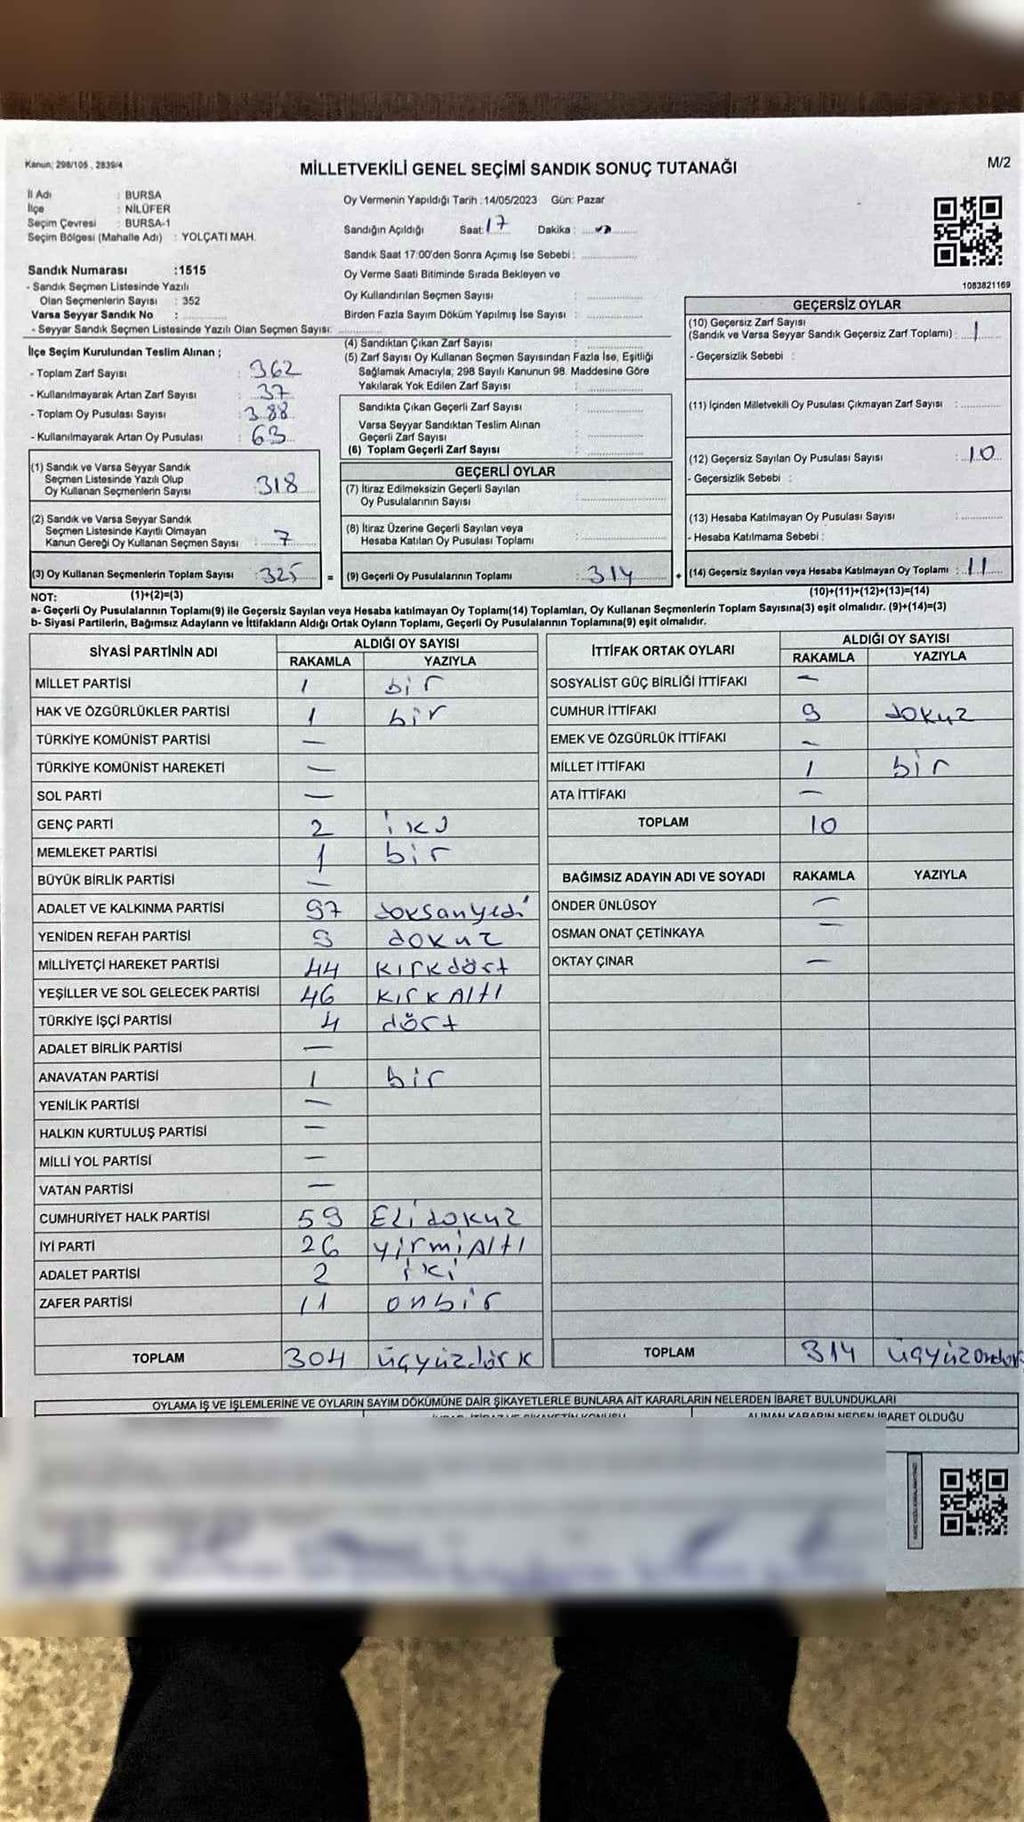 Kanun: 298/105 , 2839/4
MİLLETVEKİLİ GENEL SEÇİMİ SANDIK SONUÇ TUTANAĞI
M/2
İl Adı : BURSA
İlçe : NİLÜFER
Seçim Çevresi : BURSA-1
Seçim Bölgesi (Mahalle Adı) : YOLÇATI MAH.
Sandık Numarası :1515
- Sandık Seçmen Listesinde Yazılı
Olan Seçmenlerin Sayısı : 352
Varsa Seyyar Sandık No :
- Seyyar Sandık Seçmen Listesinde Yazılı Olan Seçmen Sayısı:
Oy Vermenin Yapıldığı Tarih : 14/05/2023 Gün: Pazar
Sandığın Açıldığı Saat: 17 Dakika :
Sandık Saat 17:00'den Sonra Açımış İse Sebebi :
Oy Verme Saati Bitiminde Sırada Bekleyen ve
Oy Kullandırılan Seçmen Sayısı :
Birden Fazla Sayım Döküm Yapılmış İse Sayısı :
1083821169
İlçe Seçim Kurulundan Teslim Alınan ;
- Toplam Zarf Sayısı : 362
- Kullanılmayarak Artan Zarf Sayısı : 37
- Toplam Oy Pusulası Sayısı : 388
- Kullanılmayarak Artan Oy Pusulası : 63
(1) Sandık ve Varsa Seyyar Sandık
Seçmen Listesinde Yazılı Olup
Oy Kullanan Seçmenlerin Sayısı : 318
(2) Sandık ve Varsa Seyyar Sandık
Seçmen Listesinde Kayıtlı Olmayan
Kanun Gereği Oy Kullanan Seçmen Sayısı : 7
(3) Oy Kullanan Seçmenlerin Toplam Sayısı : 325 =
(4) Sandıktan Çıkan Zarf Sayısı :
(5) Zarf Sayısı Oy Kullanan Seçmen Sayısından Fazla İse, Eşitliği
Sağlamak Amacıyla; 298 Sayılı Kanunun 98. Maddesine Göre
Yakılarak Yok Edilen Zarf Sayısı :
Sandıkta Çıkan Geçerli Zarf Sayısı :
Varsa Seyyar Sandıktan Teslim Alınan
Geçerli Zarf Sayısı :
(6) Toplam Geçerli Zarf Sayısı :
GEÇERLİ OYLAR
(7) İtiraz Edilmeksizin Geçerli Sayılan
Oy Pusulalarının Sayısı :
(8) İtiraz Üzerine Geçerli Sayılan veya
Hesaba Katılan Oy Pusulası Toplamı :
(9) Geçerli Oy Pusulalarının Toplamı : 314 +
GEÇERSİZ OYLAR
(10) Geçersiz Zarf Sayısı
(Sandık ve Varsa Seyyar Sandık Geçersiz Zarf Toplamı) : 1
- Geçersizlik Sebebi :
(11) İçinden Milletvekili Oy Pusulası Çıkmayan Zarf Sayısı :
(12) Geçersiz Sayılan Oy Pusulası Sayısı : 10
- Geçersizlik Sebebi :
(13) Hesaba Katılmayan Oy Pusulası Sayısı :
- Hesaba Katılmama Sebebi :
(14) Geçersiz Sayılan veya Hesaba Katılmayan Oy Toplamı : 11
NOT: (1)+(2)=(3) (10)+(11)+(12)+(13)=(14)
a- Geçerli Oy Pusulalarının Toplamı(9) ile Geçersiz Sayılan veya Hesaba katılmayan Oy Toplamı(14) Toplamları, Oy Kullanan Seçmenlerin Toplam Sayısına(3) eşit olmalıdır. (9)+(14)=(3)
b- Siyasi Partilerin, Bağımsız Adayların ve İttifakların Aldığı Ortak Oyların Toplamı, Geçerli Oy Pusulalarının Toplamına(9) eşit olmalıdır.
SİYASİ PARTİNİN ADI ALDIĞI OY SAYISI
RAKAMLA YAZIYLA
MİLLET PARTİSİ 1 bir
HAK VE ÖZGÜRLÜKLER PARTİSİ 1 bir
TÜRKİYE KOMÜNİST PARTİSİ —
TÜRKİYE KOMÜNİST HAREKETİ —
SOL PARTİ —
GENÇ PARTİ 2 iki
MEMLEKET PARTİSİ 1 bir
BÜYÜK BİRLİK PARTİSİ —
ADALET VE KALKINMA PARTİSİ 97 doksanyedi
YENİDEN REFAH PARTİSİ 9 dokuz
MİLLİYETÇİ HAREKET PARTİSİ 44 kırkdört
YEŞİLLER VE SOL GELECEK PARTİSİ 46 kırkAltı
TÜRKİYE İŞÇİ PARTİSİ 4 dört
ADALET BİRLİK PARTİSİ —
ANAVATAN PARTİSİ 1 bir
YENİLİK PARTİSİ —
HALKIN KURTULUŞ PARTİSİ —
MİLLİ YOL PARTİSİ —
VATAN PARTİSİ —
CUMHURİYET HALK PARTİSİ 59 Elidokuz
İYİ PARTİ 26 yirmiAltı
ADALET PARTİSİ 2 iki
ZAFER PARTİSİ 11 onbir
TOPLAM 304 üçyüzdörk
İTTİFAK ORTAK OYLARI ALDIĞI OY SAYISI
RAKAMLA YAZIYLA
SOSYALİST GÜÇ BİRLİĞİ İTTİFAKI —
CUMHUR İTTİFAKI 9 dokuz
EMEK VE ÖZGÜRLÜK İTTİFAKI —
MİLLET İTTİFAKI 1 bir
ATA İTTİFAKI —
TOPLAM 10
BAĞIMSIZ ADAYIN ADI VE SOYADI RAKAMLA YAZIYLA
ÖNDER ÜNLÜSOY —
OSMAN ONAT ÇETİNKAYA —
OKTAY ÇINAR —
TOPLAM 314
OYLAMA İŞ VE İŞLEMLERİNE VE OYLARIN SAYIM DÖKÜMÜNE DAİR ŞİKAYETLERLE BUNLARA AİT KARARLARIN NELERDEN İBARET BULUNDUKLARI
ALINAN KARARIN NEDEN İBARET OLDUĞU